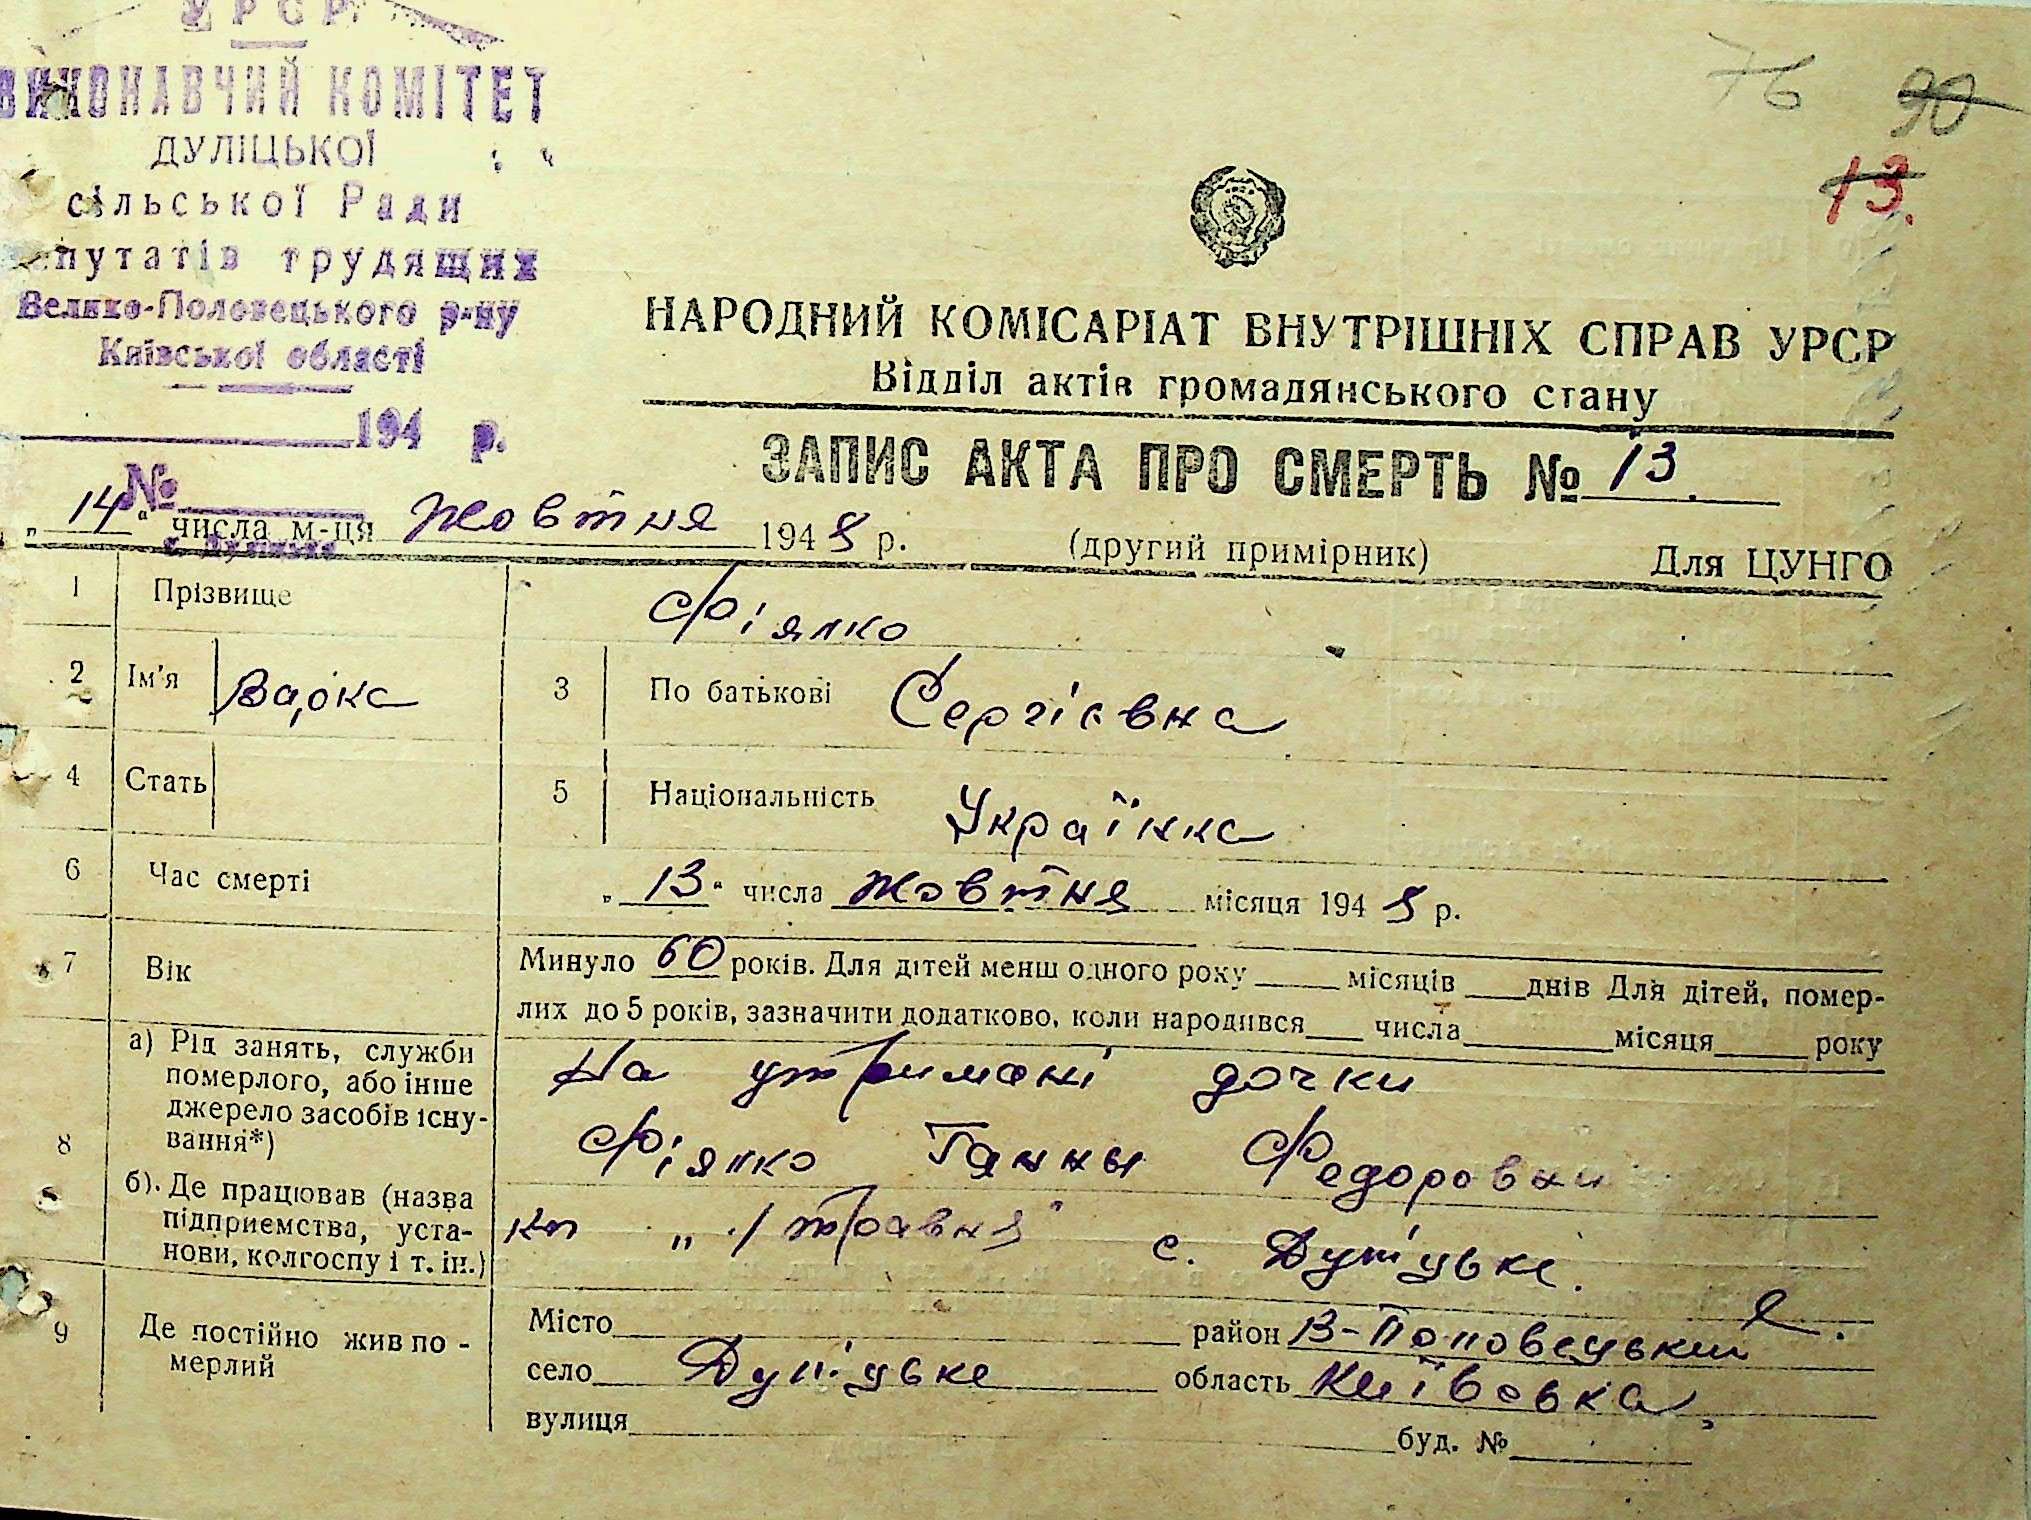 УРСР
ВИКОНАВЧИЙ КОМІТЕТ
ДУЛІЦЬКОЇ
сільської Ради
депутатів трудящих
Велико-Половецького р-ну
Київської області
194 р.
№
с. Дуліцьке
76 90
13.
НАРОДНИЙ КОМІСАРІАТ ВНУТРІШНІХ СПРАВ УРСР
Відділ актів громадянського стану
ЗАПИС АКТА ПРО СМЕРТЬ № 13.
„14“ числа м-ця Жовтня 194 р. (другий примірник) Для ЦУНГО
1 Прізвище Фіялко
2 Ім'я Варка 3 По батькові Сергієвна
4 Стать 5 Національність Українка
6 Час смерті „13“ числа жовтня місяця 194 р.
7 Вік Минуло 60 років. Для дітей менш одного року місяців днів Для дітей, помер-
лих до 5 років, зазначити додатково, коли народився числа місяця року
8 а) Рід занять, служби
померлого, або інше
джерело засобів існу-
вання*)
На утримані дочки
Фіялко Ганни Федоровни
б). Де працював (назва
підприємства, уста-
нови, колгоспу і т. ін.)
кп „1 травня“ с. Дуліцьке.
9 Де постійно жив по-
мерлий
Місто район В-Половецький
село Дуліцьке область Київська,
вулиця буд. №